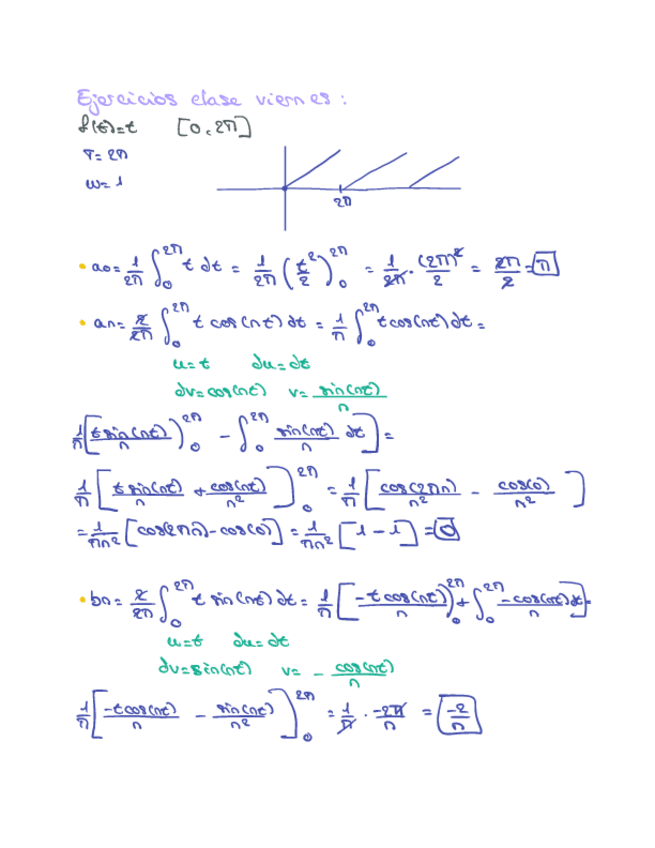 Ejercicios clase viernes:
f(t)=t [0,2π]
T=2π
ω=1
2π
• a0 = 1/2π ∫₀^2π t dt = 1/2π (t²/2)₀^2π = 1/2π · (2π)²/2 = 2π/2 = π
• an = 2/2π ∫₀^2π t cos(nt) dt = 1/π ∫₀^2π t cos(nt) dt =
u=t du=dt
dv=cos(nt) v= sin(nt)/n
1/π [t sin(nt)/n)₀^2π - ∫₀^2π sin(nt)/n dt] =
1/π [t sin(nt)/n + cos(nt)/n²]₀^2π = 1/π [cos(2πn)/n² - cos(0)/n²]
= 1/πn² [cos(2πn)-cos(0)] = 1/πn² [1-1] = 0
• bn = 2/2π ∫₀^2π t sin(nt) dt = 1/π [-t cos(nt)/n)₀^2π + ∫₀^2π -cos(nt)/n dt] =
u=t du=dt
dv=sin(nt) v= - cos(nt)/n
1/π [-t cos(nt)/n - sin(nt)/n²]₀^2π = 1/π · -2π/n = -2/n